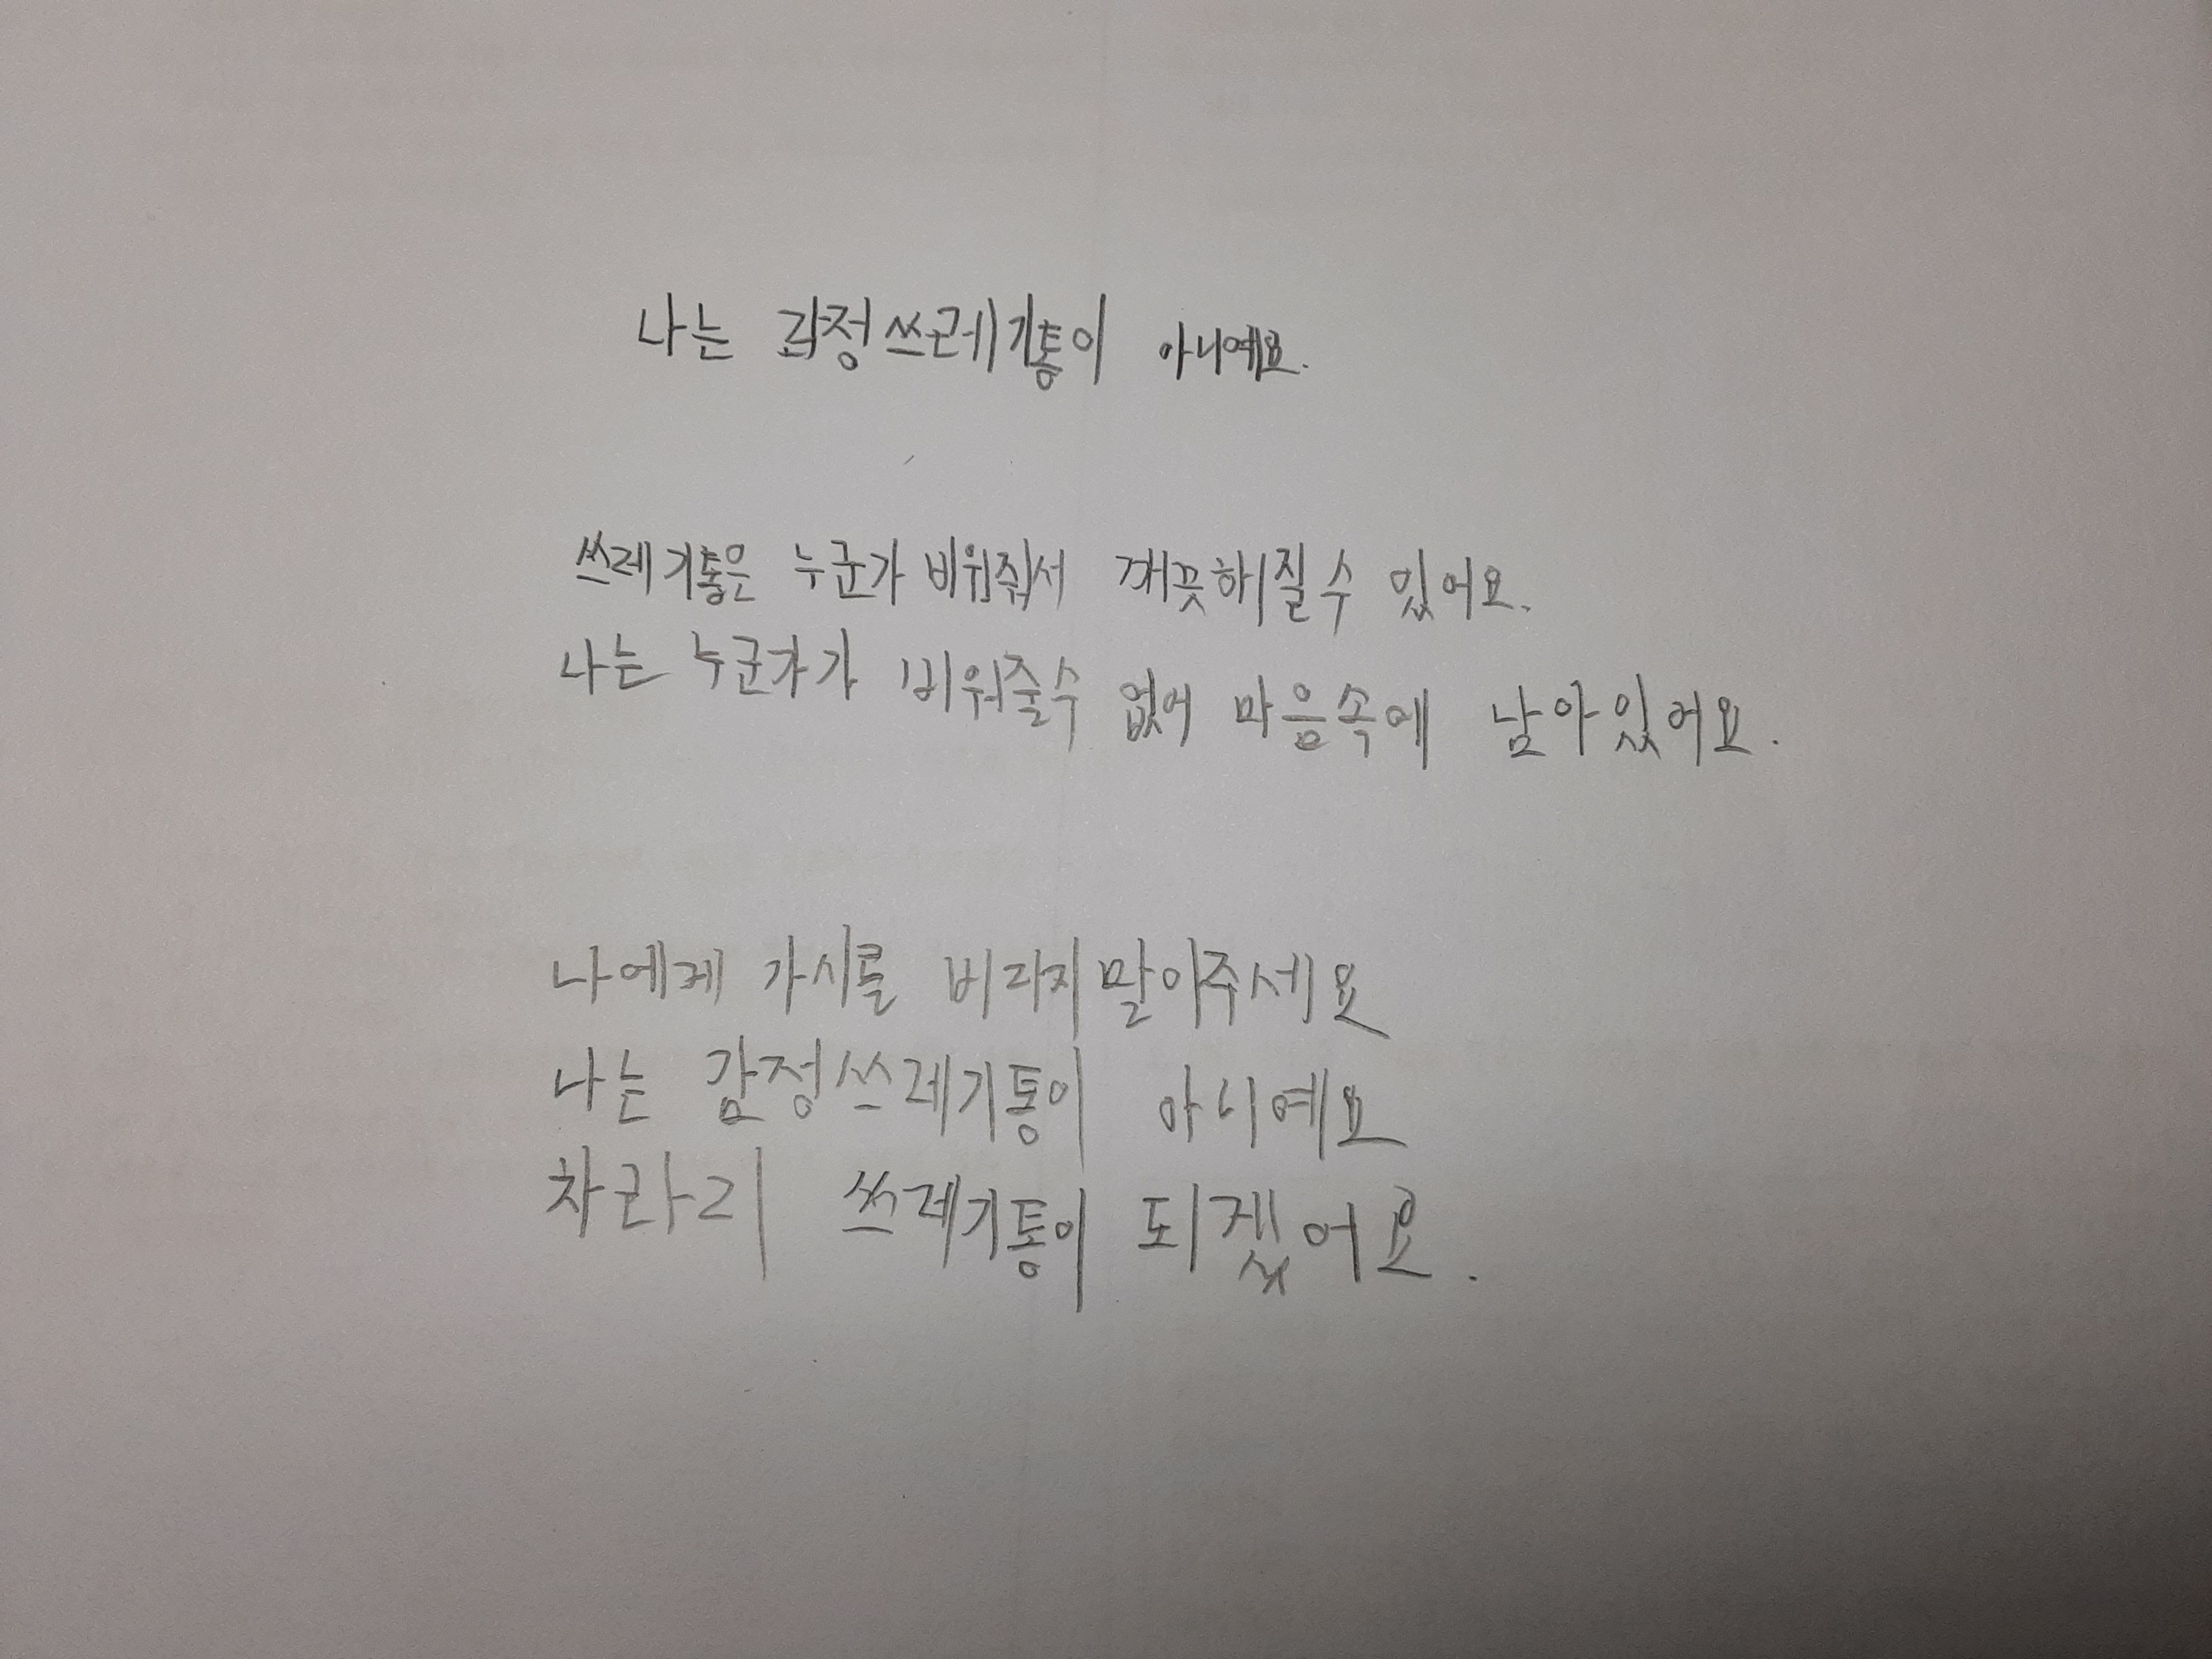 나는 감정쓰레기통이 아니예요.
쓰레기통은 누군가 비워줘서 깨끗해질수 있어요.
나는 누군가가 비워줄수 없어 마음속에 남아있어요.
나에게 가시를 비리지말아주세요
나는 감정쓰레기통이 아니예요
차라리 쓰레기통이 되겠어요.